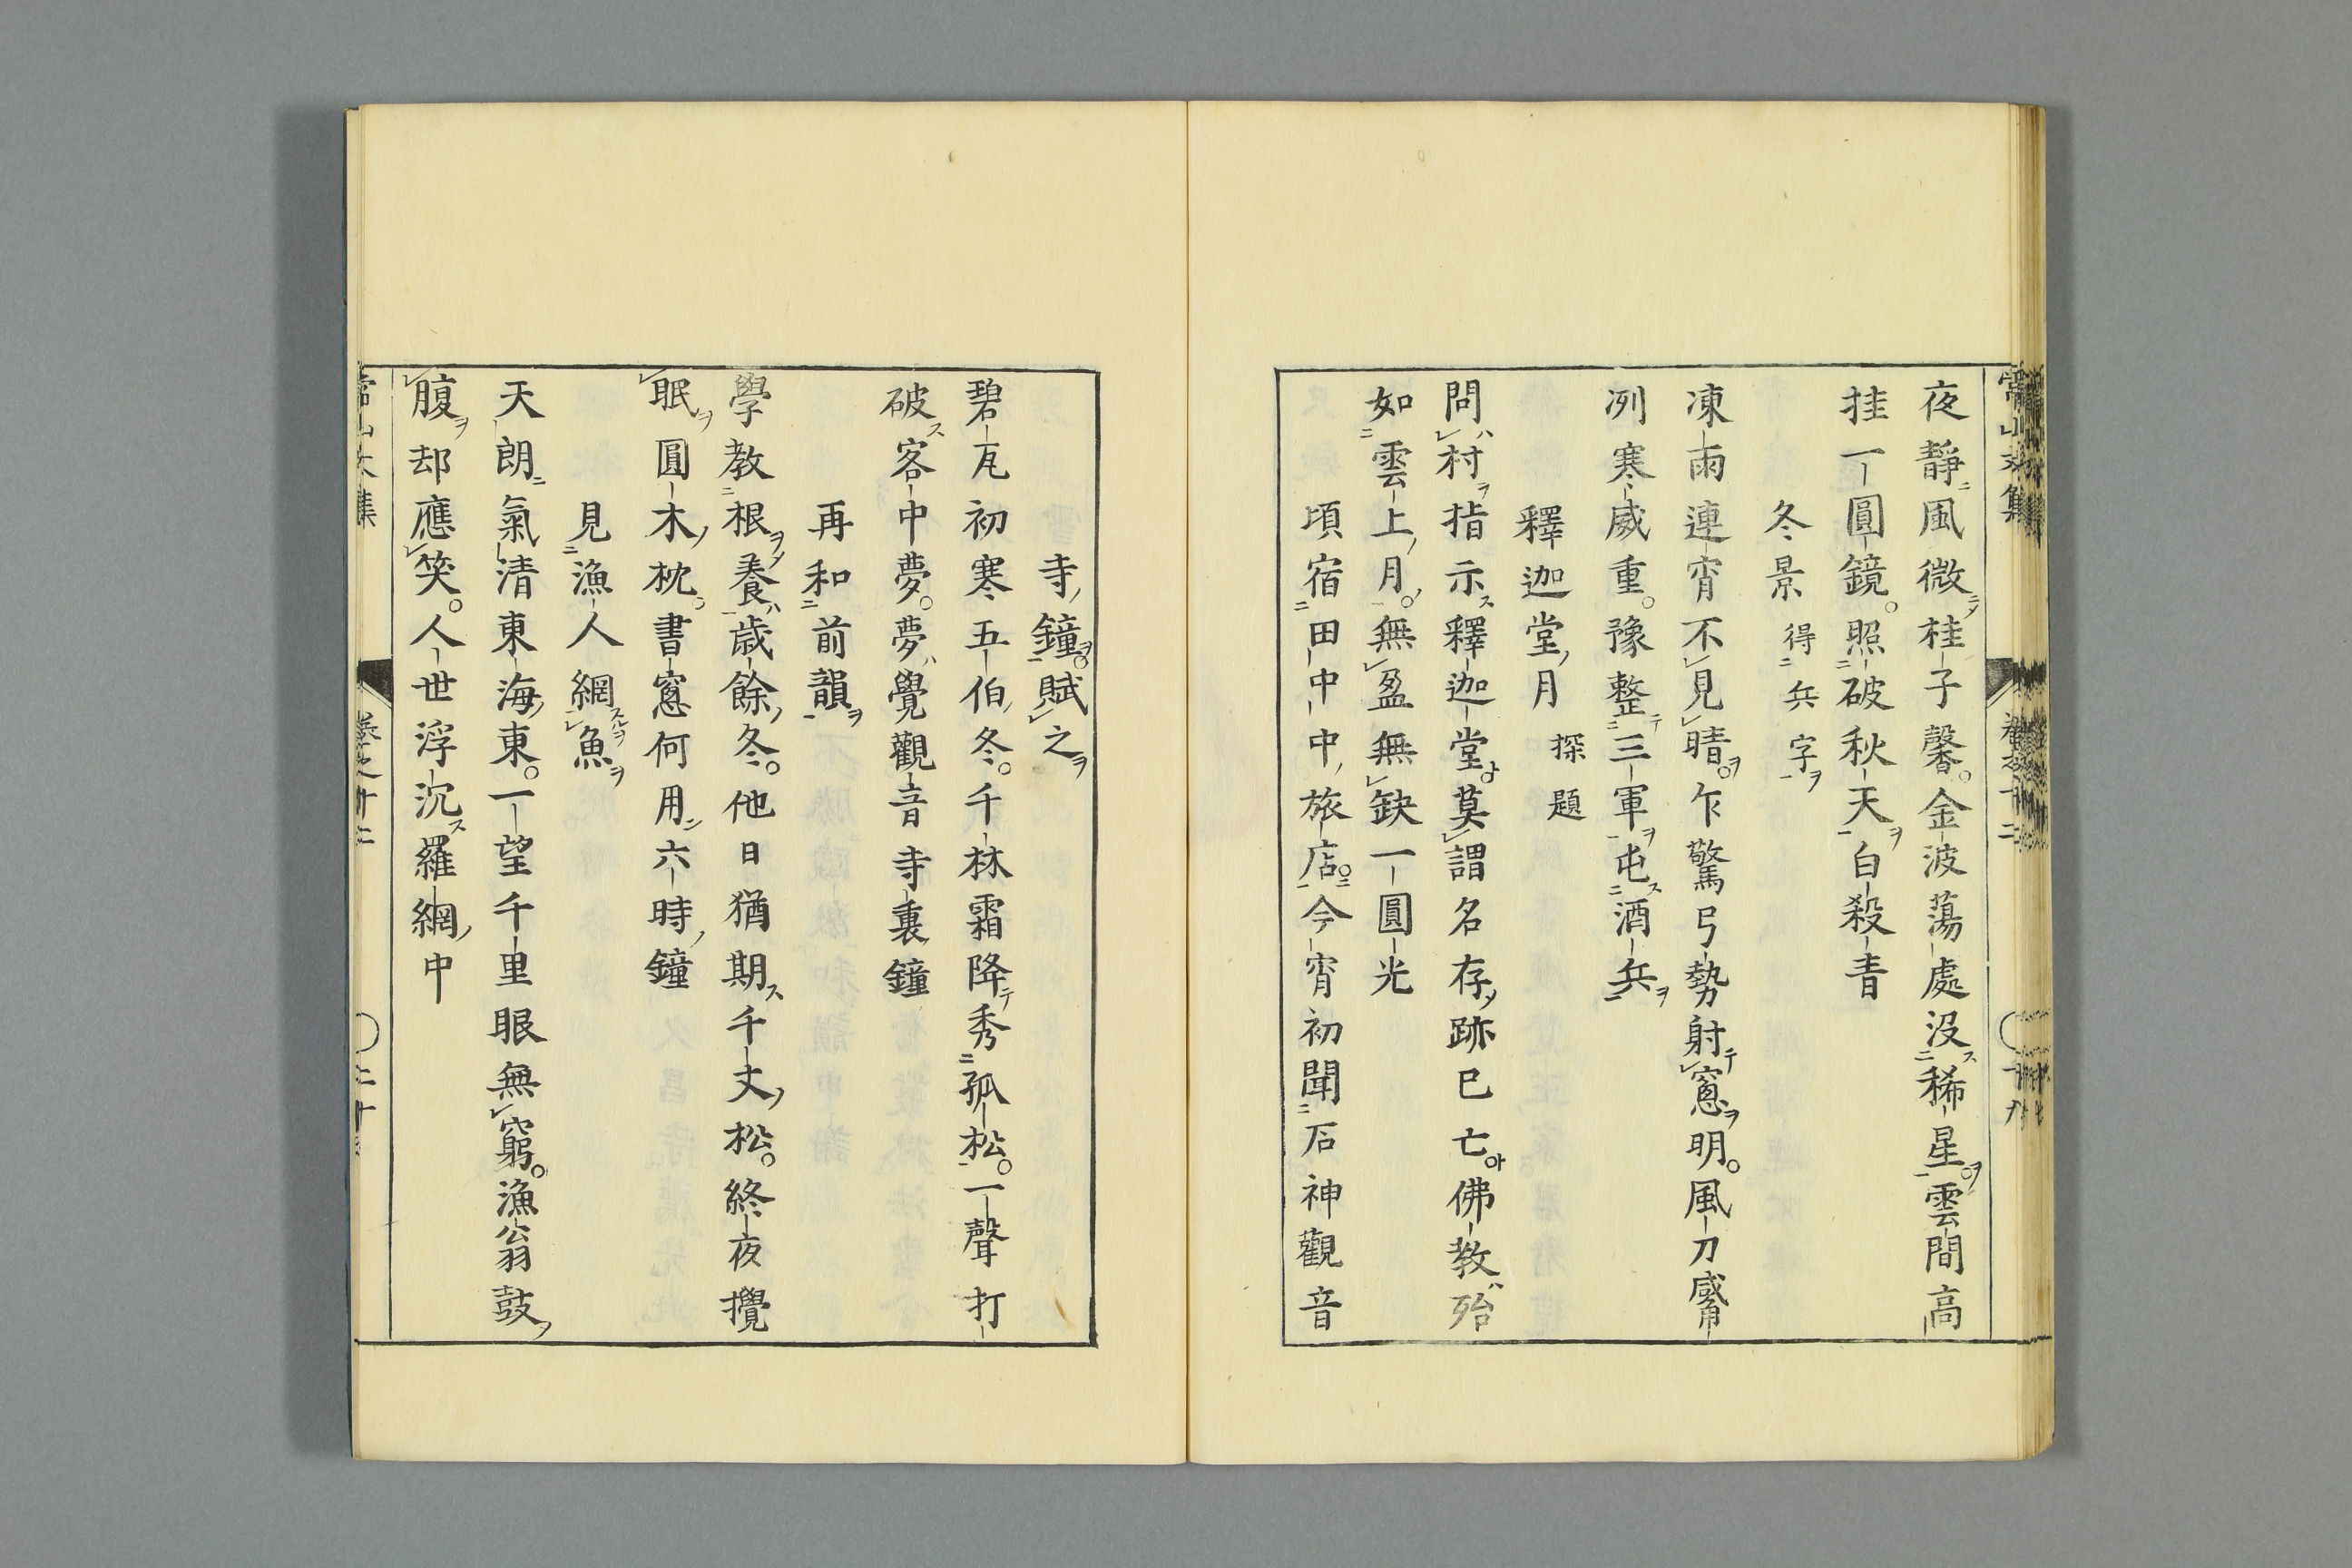 夜靜風微桂子馨金波蕩處沒稀星雲間高
挂一圓鏡照破秋天白殺青
冬景得兵字
凍雨連宵不見晴乍驚弓勢射窓明風刀觱
冽寒威重豫整三軍屯酒兵
釋迦堂月探題
問村指示釋迦堂莫謂名存跡已亡佛教殆
如雲上月無盈無缺一圓光
頃宿田中中旅店今宵初聞石神觀音
寺鐘賦之
碧瓦初寒五伯冬千林霜降秀孤松一聲打
破客中夢夢覺觀音寺裏鐘
再和前韻
學教根養歲餘冬他日猶期千丈松終夜攪
眠圓木枕書窓何用六時鐘
見漁人網魚
天朗氣清東海東一望千里眼無窮漁翁鼓
腹却應笑人世浮沉羅網中
常山文集 卷之十二 二十